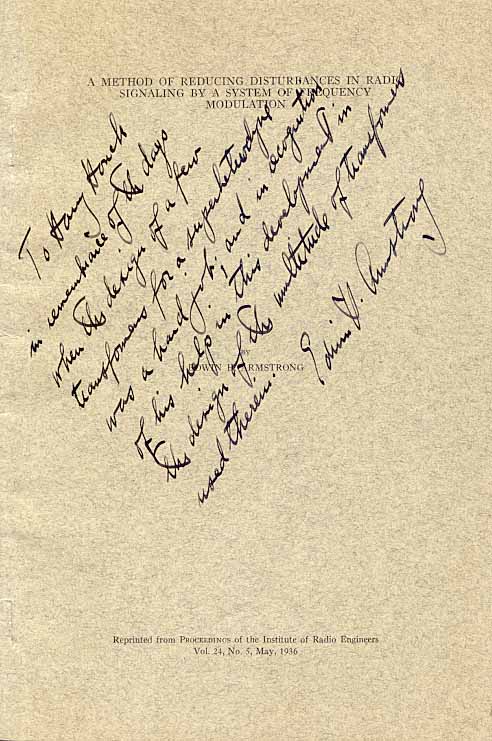 A METHOD OF REDUCING DISTURBANCES IN RADIO
SIGNALING BY A SYSTEM OF FREQUENCY
MODULATION
To Harry Houck
in remembrance of the days
when the design of a few
transformers for a superheterodyne
was a hard job; and in recognition
of his help in this development in
the design of the multitude of transformers
used therein.
Edwin H. Armstrong
BY
EDWIN H. ARMSTRONG
Reprinted from PROCEEDINGS of the Institute of Radio Engineers
Vol. 24, No. 5, May, 1936